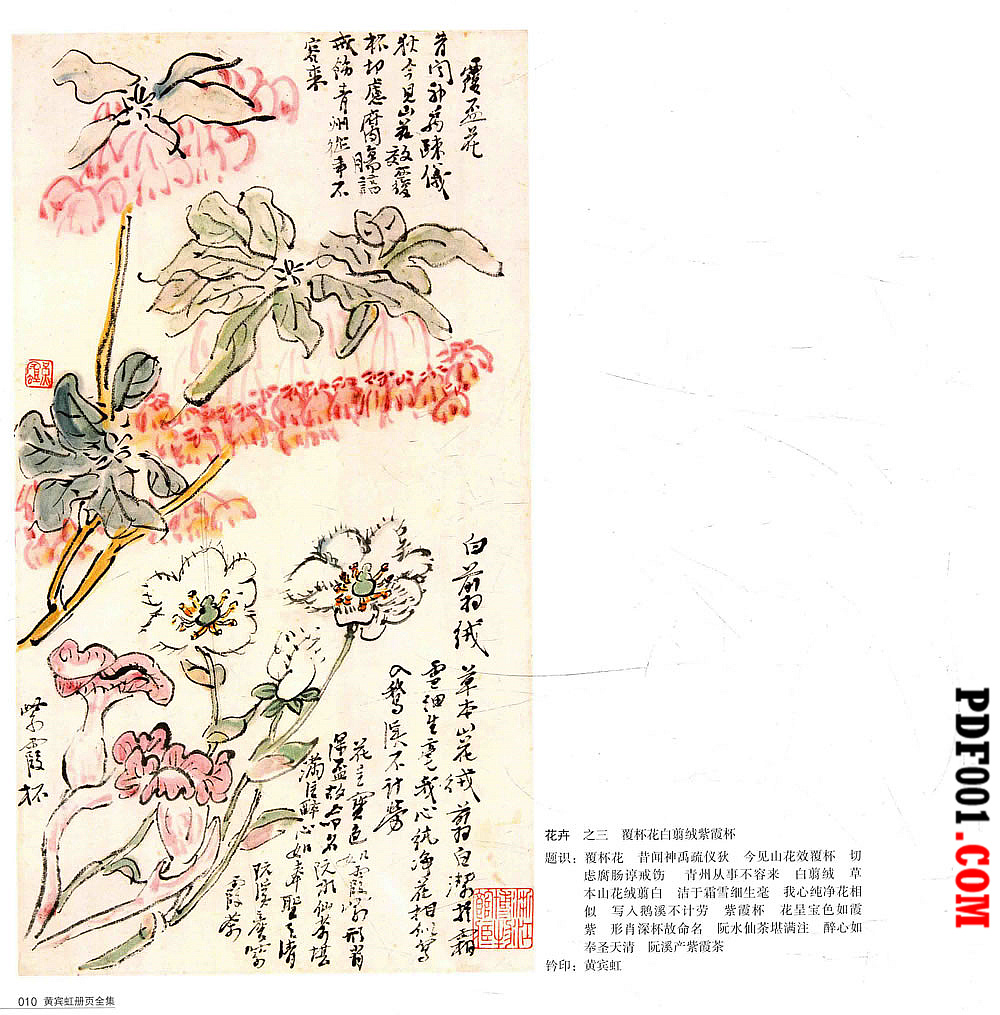 覆盃花
昔闻神禹疎儀
狄今见山花效覆
杯切慮腐腸諄
戒飭青州從事不
容来
白翦绒
草本山花绒翦白潔於霜
雪细生毫我心純净花相似寫
入鹅溪不计劳
紫霞杯
花呈寶色如霞紫形肖
深盃故命名阮水仙茶堪
满注醉心如奉聖天清
阮溪產紫
霞茶
花卉　之三　覆杯花白翦绒紫霞杯
题识：覆杯花　昔闻神禹疏仪狄　今见山花效覆杯　切
虑腐肠谆戒饬　青州从事不容来　白翦绒　草
本山花绒翦白　洁于霜雪细生毫　我心纯净花相
似　写入鹅溪不计劳　紫霞杯　花呈宝色如霞
紫　形肖深杯故命名　阮水仙茶堪满注　醉心如
奉圣天清　阮溪产紫霞茶
钤印：黄宾虹
010 黄宾虹册页全集
PDF001.COM